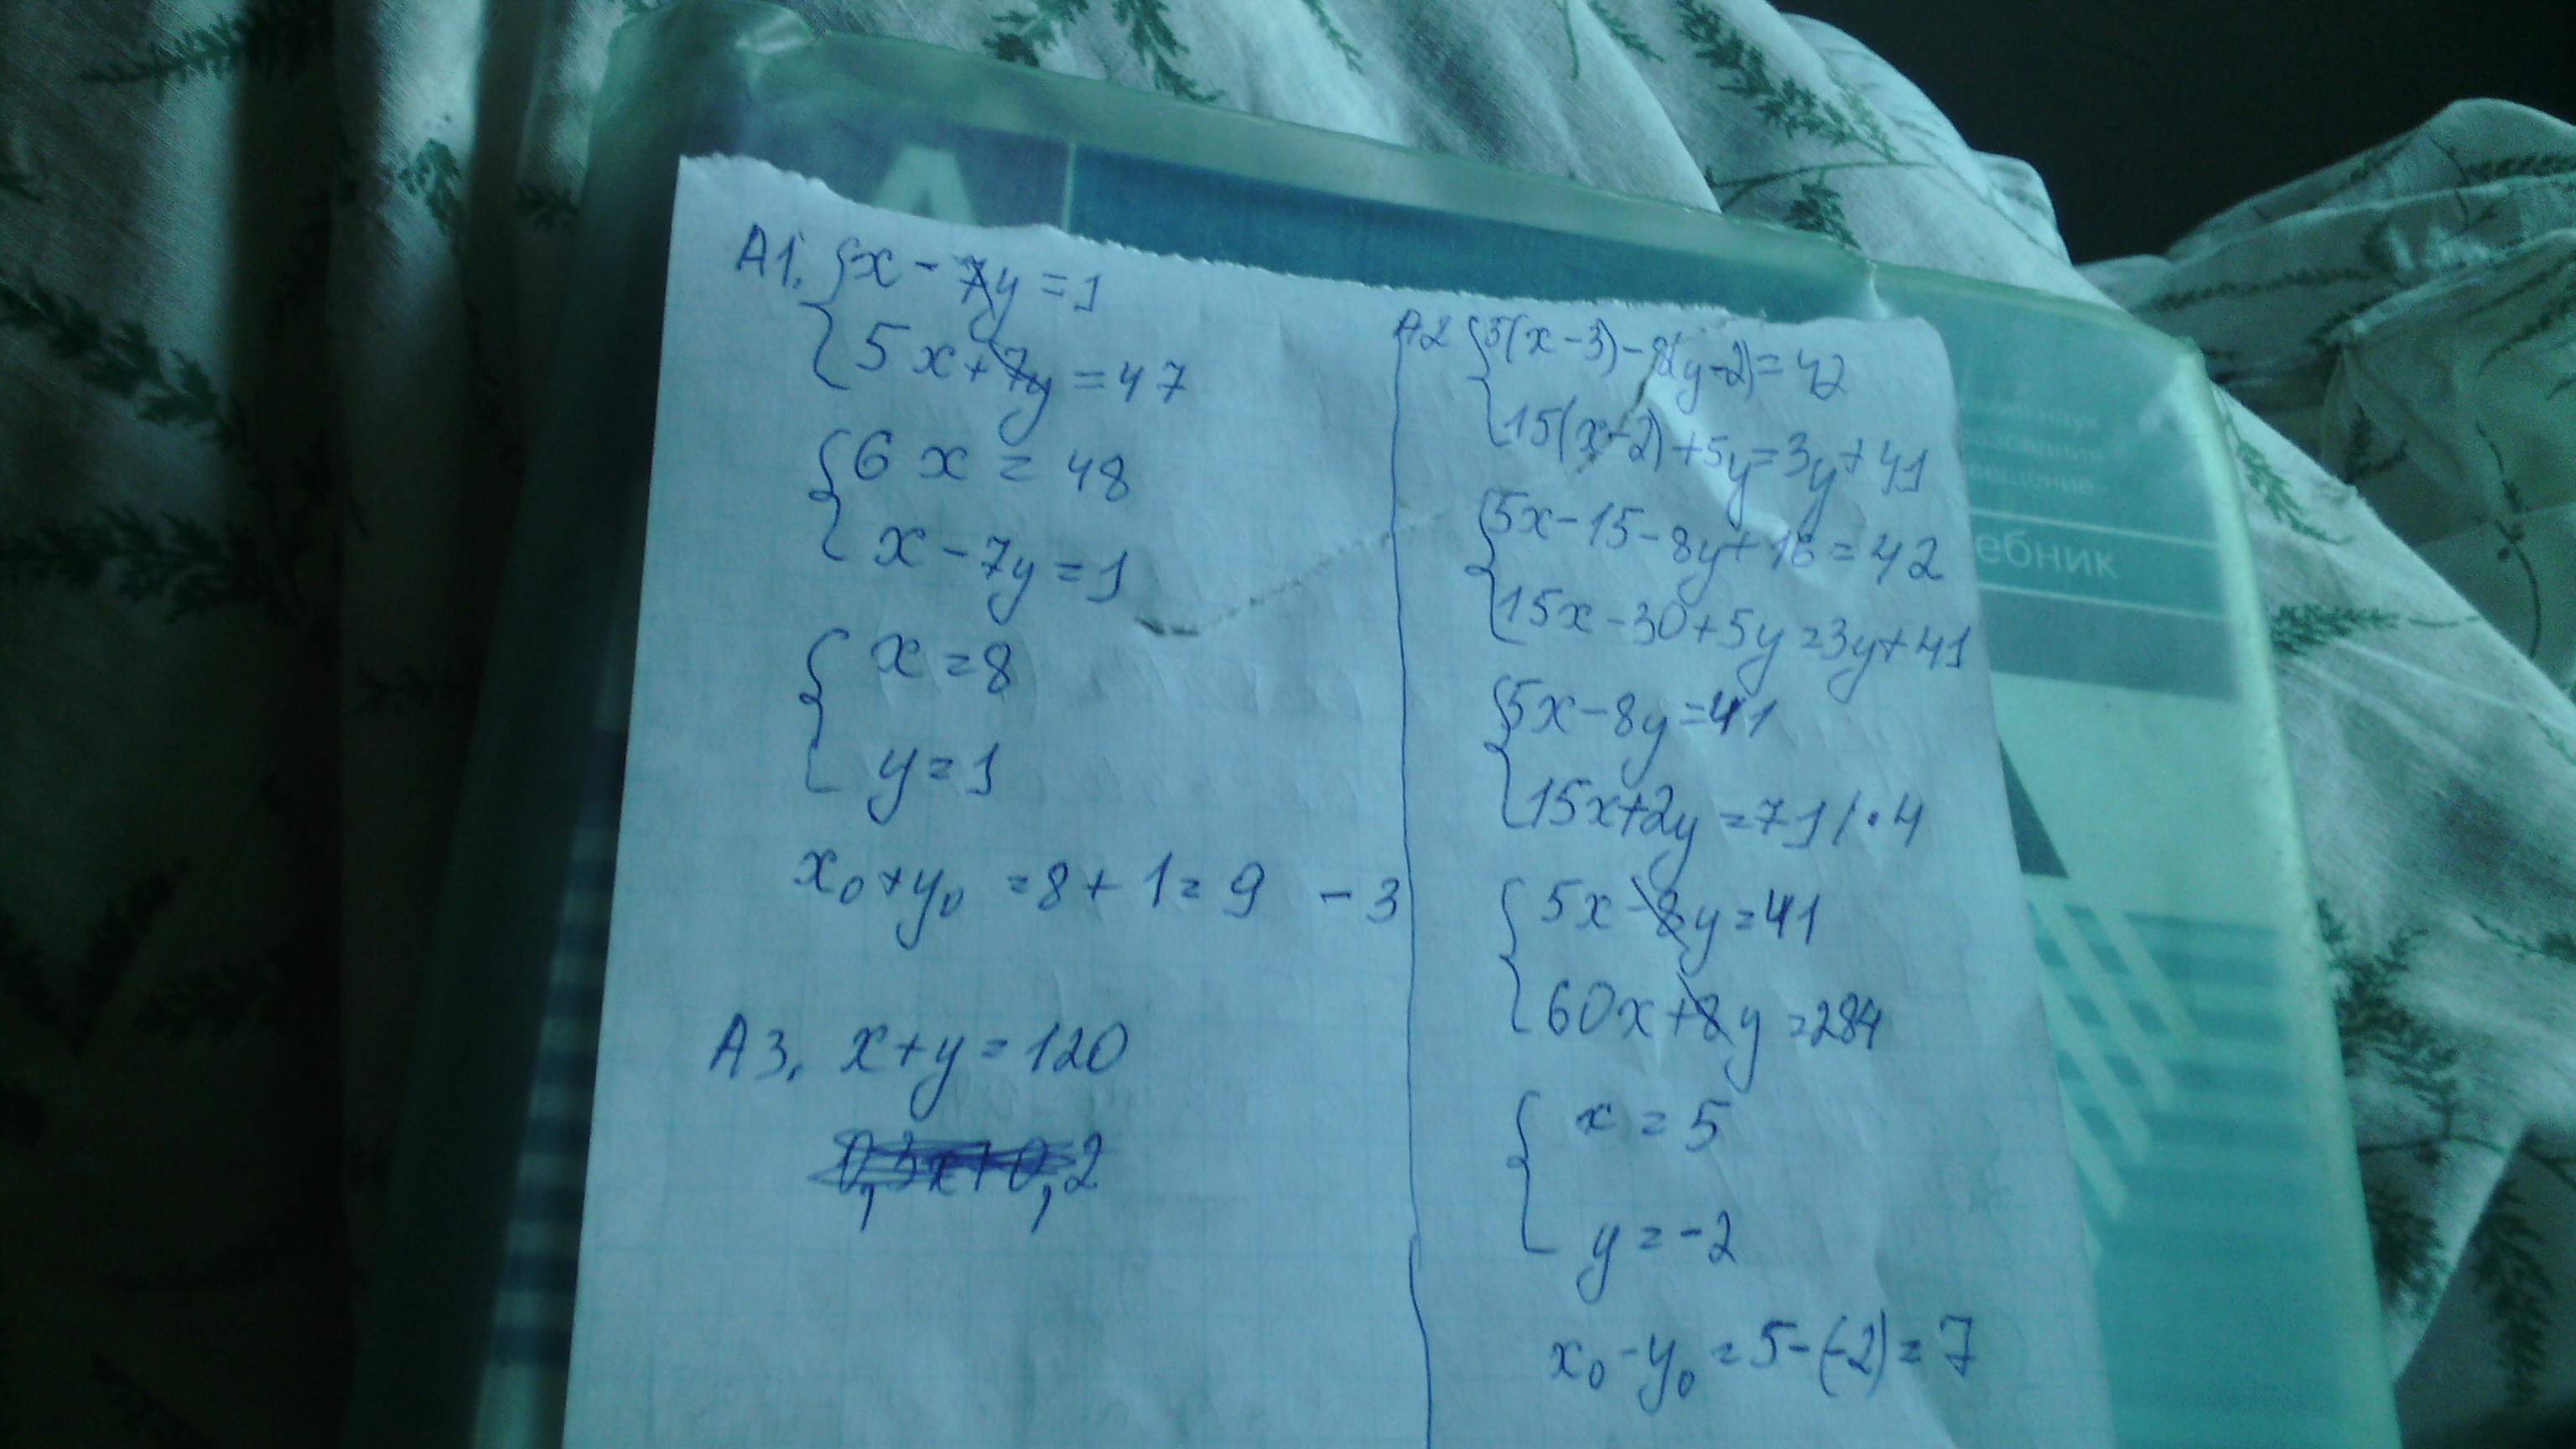 A1. {x - 7y = 1
{5x + 7y = 47
{6x = 48
x - 7y = 1
{x = 8
y = 1
x₀ + y₀ = 8 + 1 = 9 - 3
A3. x + y = 120
0,3x + 0,2
A2 {5(x - 3) - 8(y - 2) = 42
15(x - 2) + 5y = 3y + 41
{5x - 15 - 8y + 16 = 42
15x - 30 + 5y = 3y + 41
{5x - 8y = 41
15x + 2y = 71 / · 4
{5x - 8y = 41
60x + 8y = 284
{x = 5
y = -2
x₀ - y₀ = 5 - (-2) = 7
А
ебник